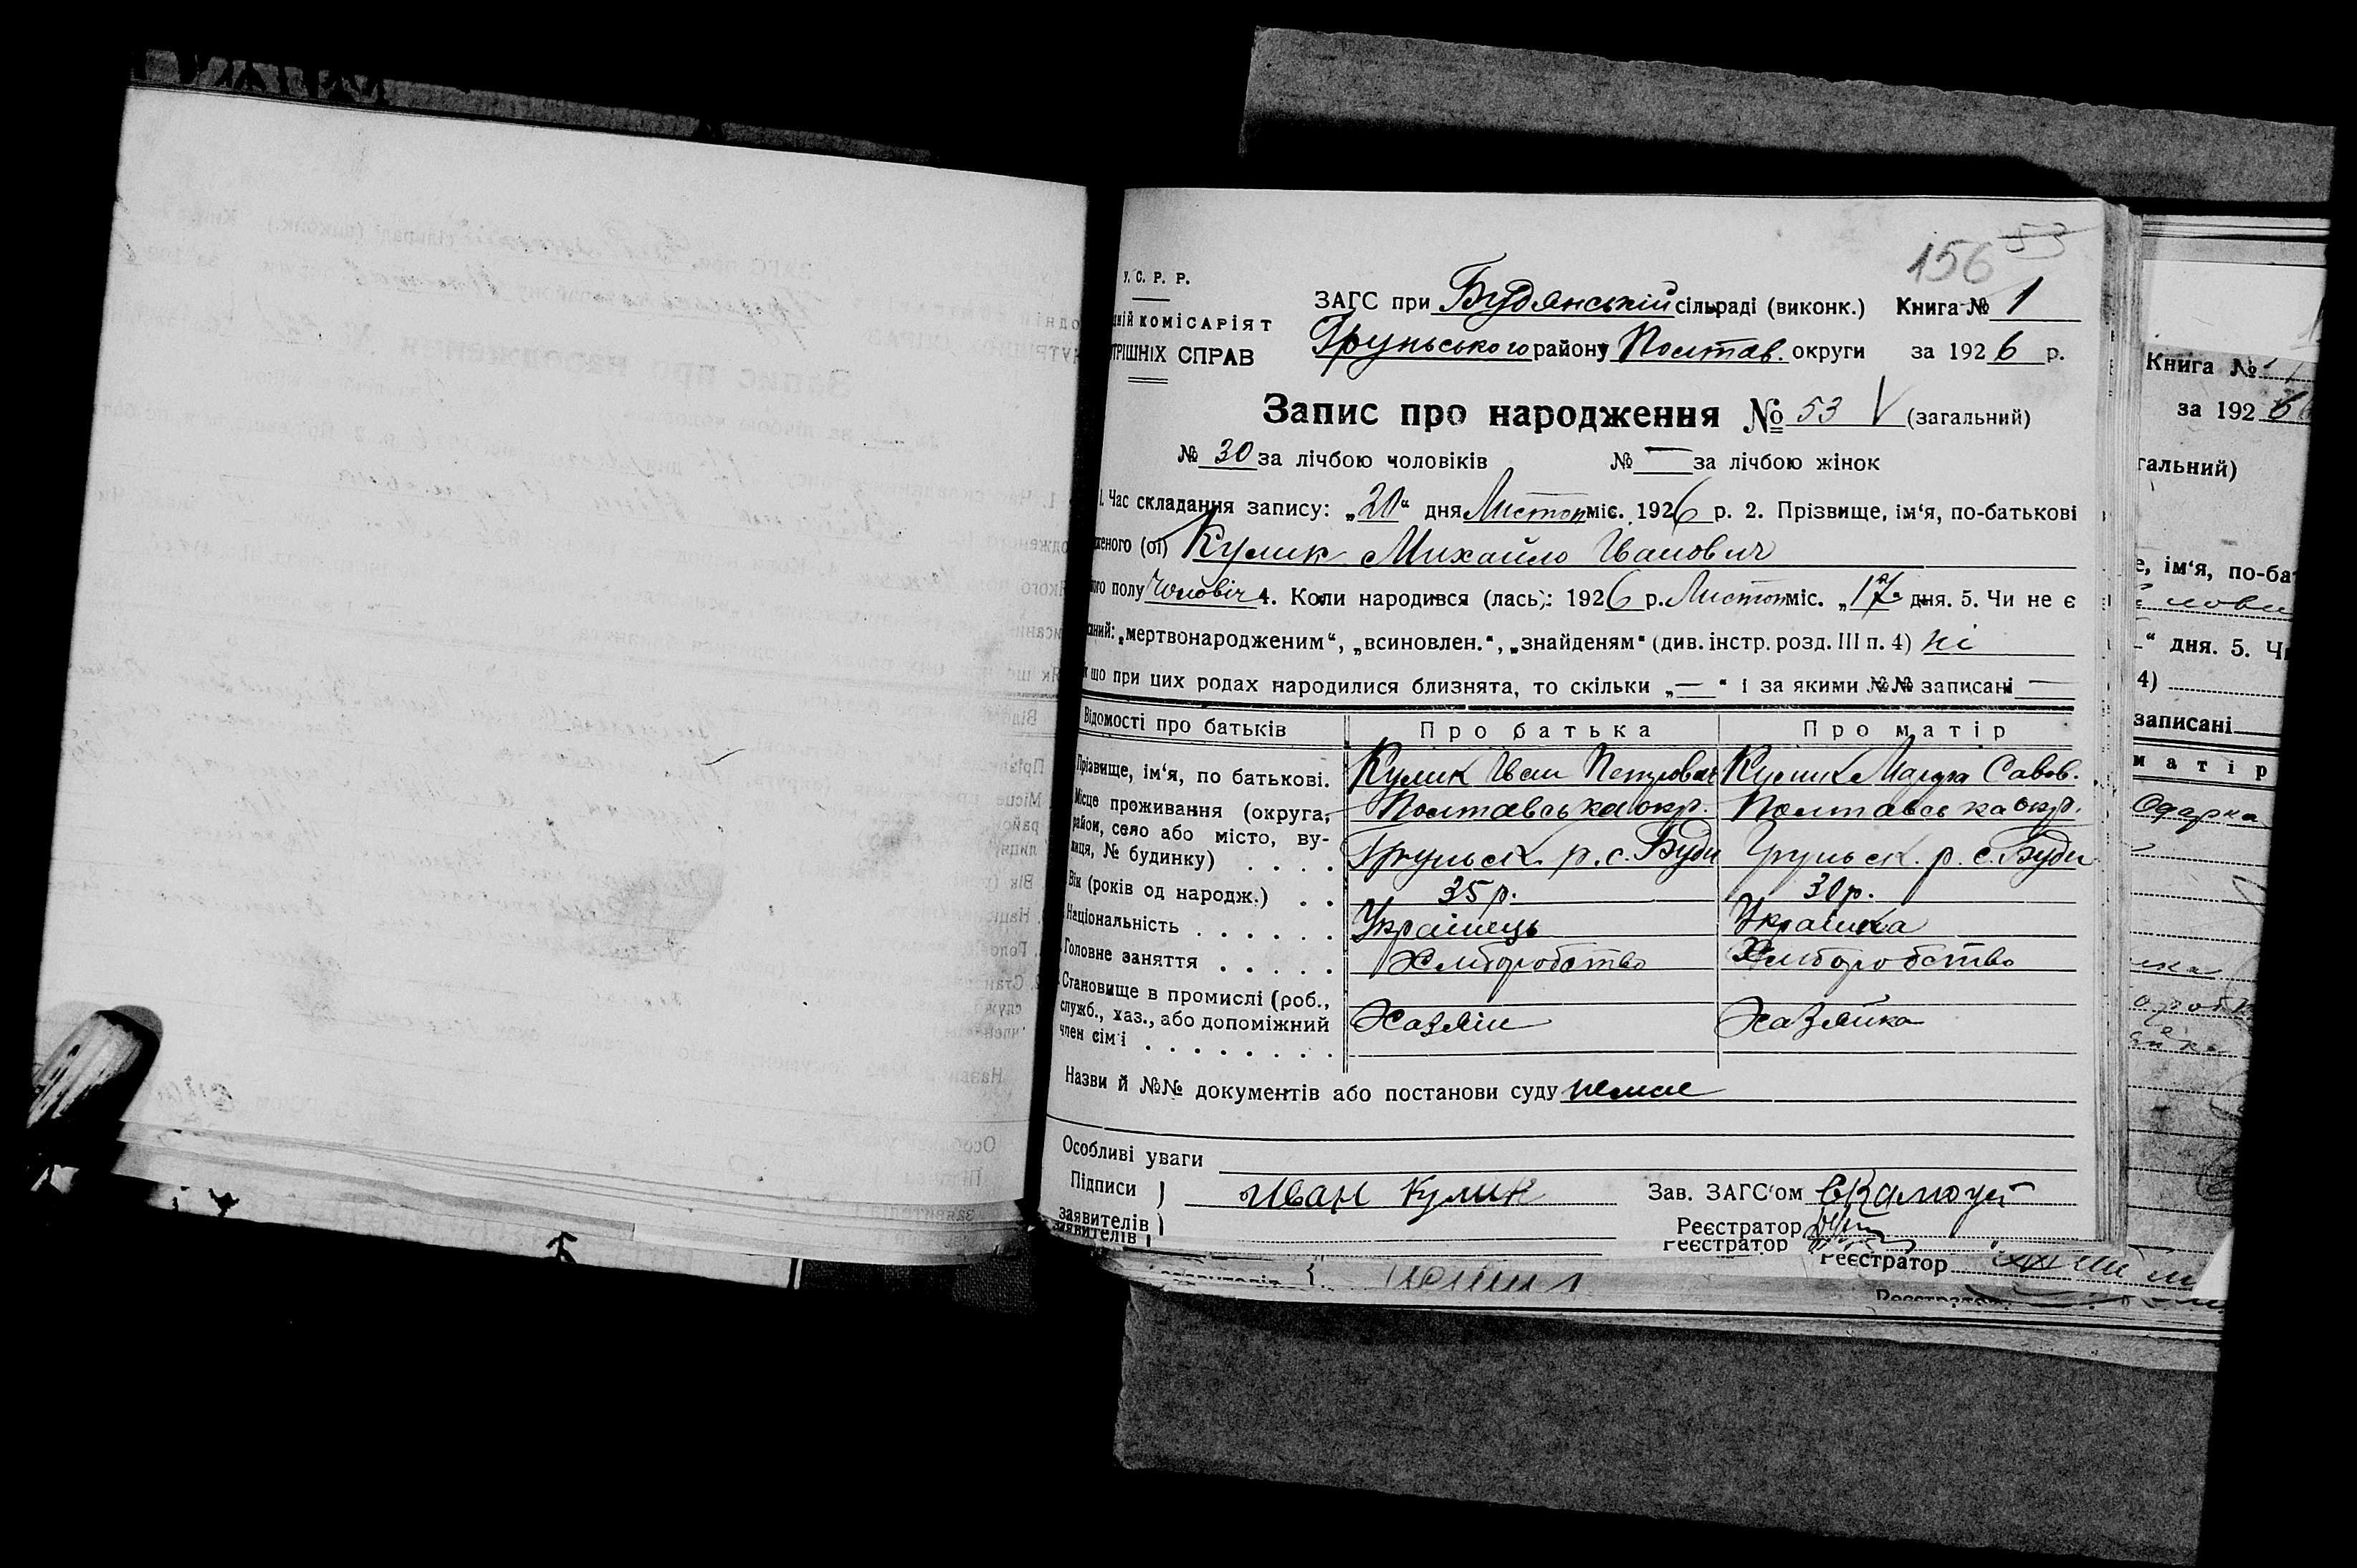 156 53
У. С. Р. Р.
ЗАГС при Будянській сільраді (виконк.) Книга № 1
КОМІСАРІЯТ
Груньського району Полтав. округи за 1926 р.
СПРАВ
Запис про народження № 53 V (загальний)
№ 30 за лічбою чоловіків № — за лічбою жінок
1. Час складання запису: „20“ дня Листоп міс. 1926 р. 2. Прізвище, ім‘я, по-батькові
(ої) Кулик Михайло Іванович
полу Чоловіч 4. Коли народився (лась): 1926 р. Листоп міс. „17“ дня. 5. Чи не є
„мертвонародженим“, „всиновлен.“, „знайденям“ (див. інстр. розд. III п. 4) ні
що при цих родах народилися близнята, то скільки „—“ і за якими №№ записані —
Відомості про батьків Про батька Про матір
Прізвище, ім‘я, по батькові. Кулик Іван Петрович Кулик Марфа Савов.
Місце проживання (округа, Полтавська окр. Полтавська окр.
район, село або місто, ву-
лиця, № будинку) . . . . Груньск. р. с. Буди Груньск. р. с. Буди
Вік (років од народж.) . . 35 р. 30 р.
Національність . . . . . . Українець Українка
Головне заняття . . . . . Хліборобство Хліборобство
Становище в промислі (роб.,
служб., хаз., або допоміжний Хазяїн Хазяйка
член сім‘ї . . . . . . . .
Назви й №№ документів або постанови суду немає
Особливі уваги
Підписи } Иван Кулик Зав. ЗАГС‘ом
заявителів } Реєстратор
заявителів Реєстратор
Реєстратор
Книга № 1
за 1926
ім‘я, по-ба
“ дня. 5.
4)
записані
матір
Одарка